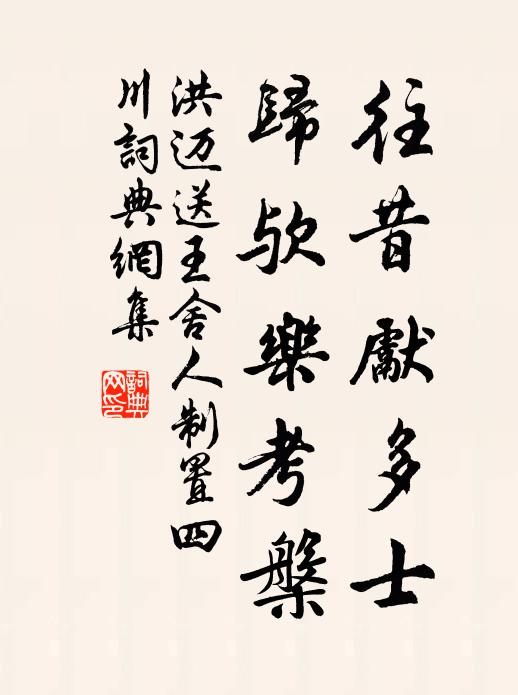 往昔獻多士
歸欤樂考槃
洪迈送王舍人制置四
川詞典網集
詞典
网印